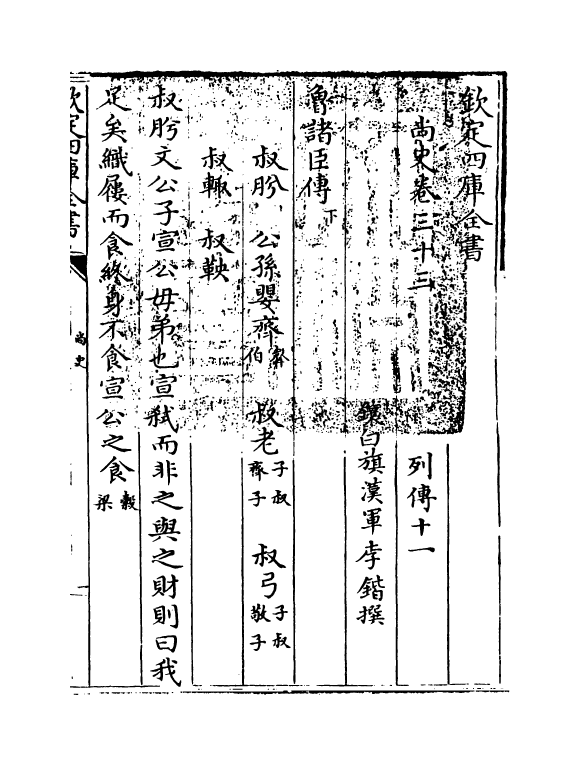 欽定四庫全書
尚史卷三十三　列傳十一
鑲白旗漢軍李鍇撰
魯諸臣傳下
叔肸　公孫嬰齊　叔老子叔齊子　叔弓子叔敬子
叔輒　叔鞅
叔肸文公子宣公母弟也宣弑而非之與之財則曰我
足矣織屨而食終身不食宣公之食穀梁
欽定四庫全書
尚史